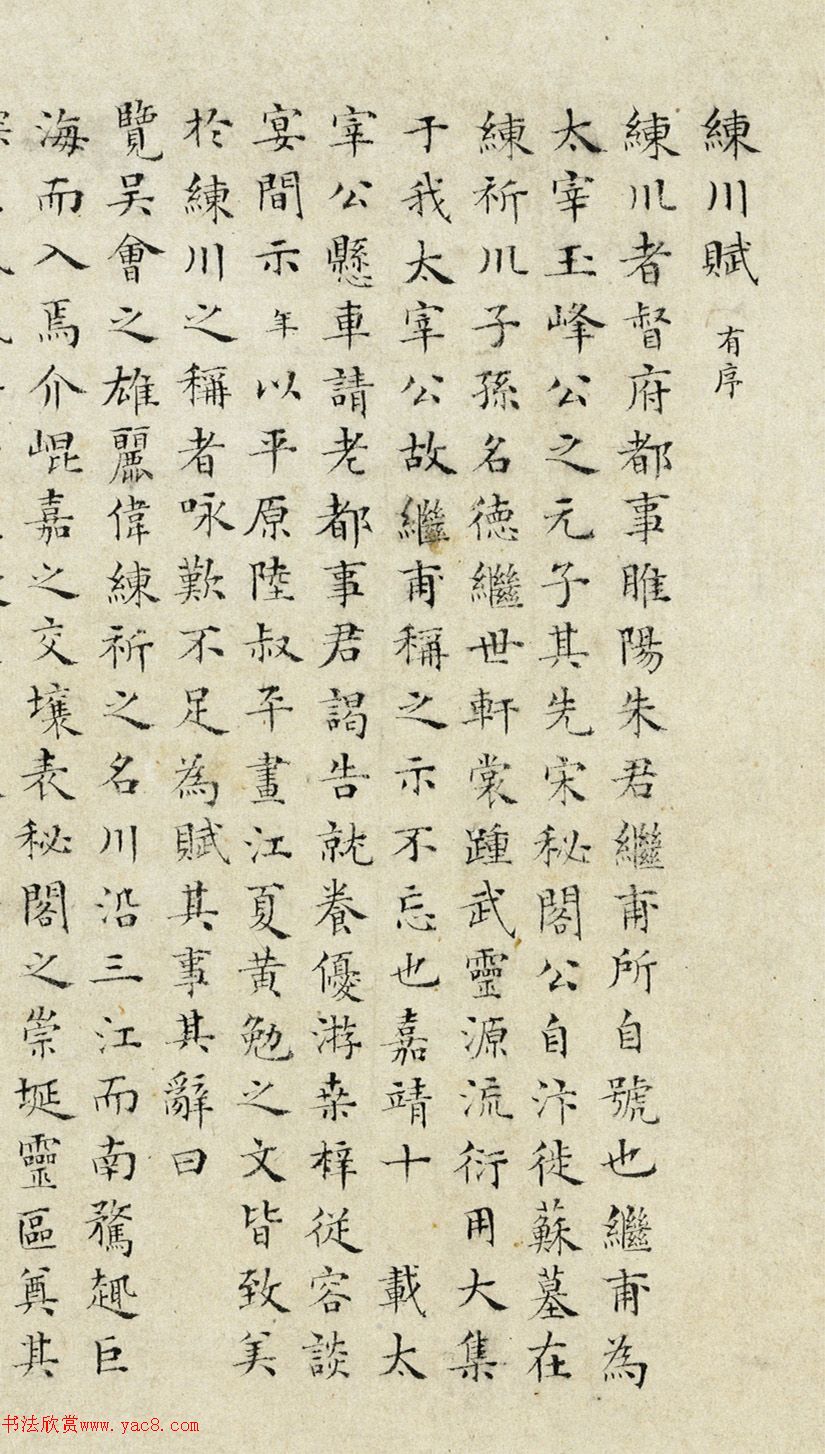 練川賦 有序
練川者督府都事睢陽朱君繼甫所自號也繼甫為
太宰玉峰公之元子其先宋秘閣公自汴徙蘇墓在
練祈川子孫名德繼世軒裳踵武靈源流衍用大集
于我太宰公故繼甫稱之示不忘也嘉靖十 載太
宰公懸車請老都事君謁告就養優游桒梓從容談
宴間示年以平原陸叔平畫江夏黃勉之文皆致美
於練川之稱者咏歎不足為賦其事其辭曰
覽吳會之雄麗偉練祈之名川沿三江而南騖趣巨
海而入焉介崐嘉之交壤表秘閣之崇埏靈區奠其
书法欣赏www.yac8.com